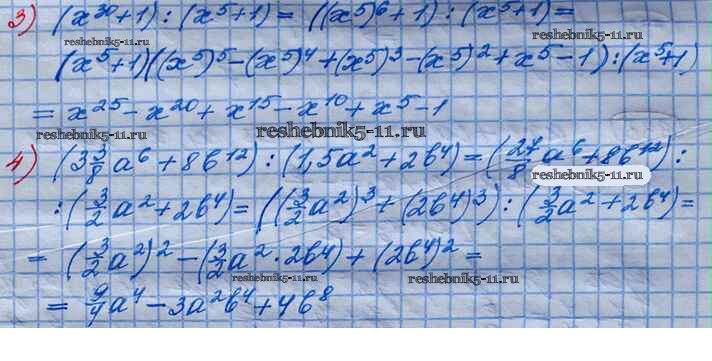 3) (x³⁰+1) : (x⁵+1) = ((x⁵)⁶+1) : (x⁵+1) =
reshebnik5-11.ru reshebnik5-11.ru
(x⁵+1)((x⁵)⁵-(x⁵)⁴+(x⁵)³-(x⁵)²+x⁵-1) : (x⁵+1)
= x²⁵-x²⁰+x¹⁵-x¹⁰+x⁵-1
reshebnik5-11.ru reshebnik5-11.ru reshebnik5-11.ru
4) (3 3/8 a⁶+8b¹²) : (1,5a²+2b⁴) = (27/8 a⁶+8b¹²) :
reshebnik5-11.ru
: (3/2 a²+2b⁴) = ((3/2 a²)³+(2b⁴)³) : (3/2 a²+2b⁴) =
= (3/2 a²)²-(3/2 a²·2b⁴)+(2b⁴)² =
reshebnik5-11.ru reshebnik5-11.ru reshebnik5-11.ru
= 9/4 a⁴-3a²b⁴+4b⁸